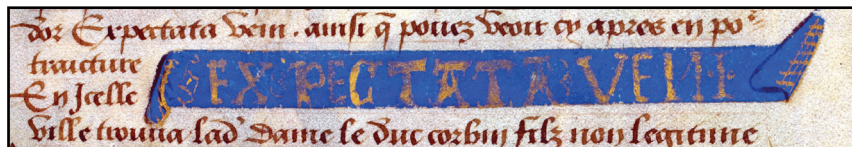 dor Expectata veni. ainsi q̃ pouez veoir cy apres en po˜
traicture
EXPECTATA VENI
En Jcelle
ville trouua lad' Dame le duc corbin filz non legitime